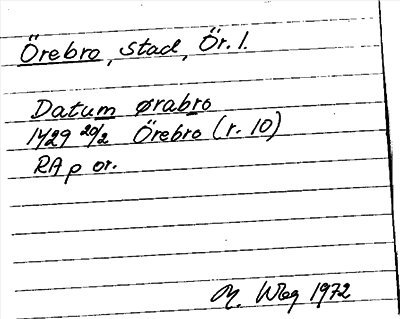 Örebro, stad, Ör. l.
Datum ørabro
1429 20/2 Örebro (r. 10)
RAp or.
M. Wbg 1972